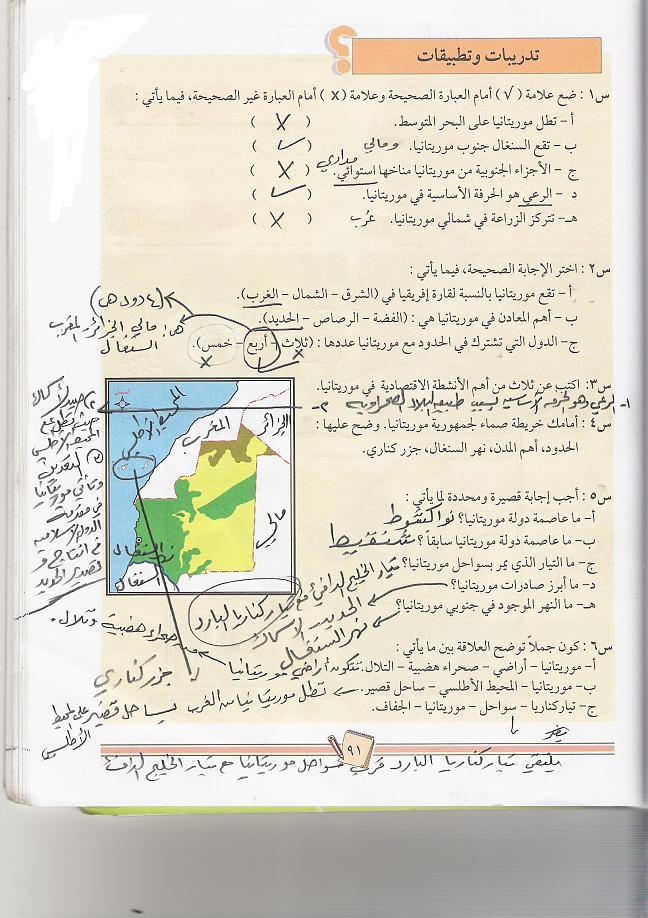 تدريبات وتطبيقات
س١ : ضع علامة ( √ ) أمام العبارة الصحيحة وعلامة ( x ) أمام العبارة غير الصحيحة، فيما يأتي :
أ – تطل موريتانيا على البحر المتوسط. ( X )
ب – تقع السنغال جنوب موريتانيا. ومالي ( ✓ )
مداري
ج – الأجزاء الجنوبية من موريتانيا مناخها استوائي. ( X )
د – الرعي هو الحرفة الأساسية في موريتانيا. ( ✓ )
هـ – تتركز الزراعة في شمالي موريتانيا. غرب ( X )
س٢ : اختر الإجابة الصحيحة، فيما يأتي :
أ – تقع موريتانيا بالنسبة لقارة إفريقيا في (الشرق – الشمال – الغرب).
ب – أهم المعادن في موريتانيا هي : (الفضة – الرصاص – الحديد).
ج – الدول التي تشترك في الحدود مع موريتانيا عددها : (ثلاث – أربع – خمس).
(٤ دول هي)
مالي الجزائر المغرب
السنغال
س٣ : اكتب عن ثلاث من أهم الأنشطة الاقتصادية في موريتانيا.
١- الرعي وهو الحرفة الأساسية بسبب طبيعة البلاد الصحراوية
٢-
س٤ : أمامك خريطة صماء لجمهورية موريتانيا. وضح عليها :
الحدود، أهم المدن، نهر السنغال، جزر كناري.
صيد الأسماك
حيث تطل على
المحيط الأطلسي
التعدين
وتأتي موريتانيا
في مقدمة
الدول الإسلامية
في إنتاج و
تصدير الحديد
الشمال
المحيط الأطلسي
المغرب
الجزائر
مالي
نهر السنغال
السنغال
س٥ : أجب إجابة قصيرة ومحددة لما يأتي :
أ – ما عاصمة دولة موريتانيا؟ نواكشوط
ب – ما عاصمة دولة موريتانيا سابقاً؟ شنقيط
ج – ما التيار الذي يمر بسواحل موريتانيا؟ تيار الخليج الدافئ مع تيار كناريا البارد
د – ما أبرز صادرات موريتانيا؟ الحديد الأسماك
هـ – ما النهر الموجود في جنوبي موريتانيا؟ نهر السنغال
س٦ : كون جملاً توضح العلاقة بين ما يأتي :
أ – موريتانيا – أراضي – صحراء هضبية – التلال. تتكون أراضي موريتانيا من صحراء هضبية وتلال.
جزر كناري
ب – موريتانيا – المحيط الأطلسي – ساحل قصير. تطل موريتانيا من الغرب بساحل قصير على المحيط الأطلسي
ج – تيار كناريا – سواحل – موريتانيا – الجفاف.
٩١
يلتقي تيار كناريا البارد قرب سواحل موريتانيا مع تيار الخليج الدافئ